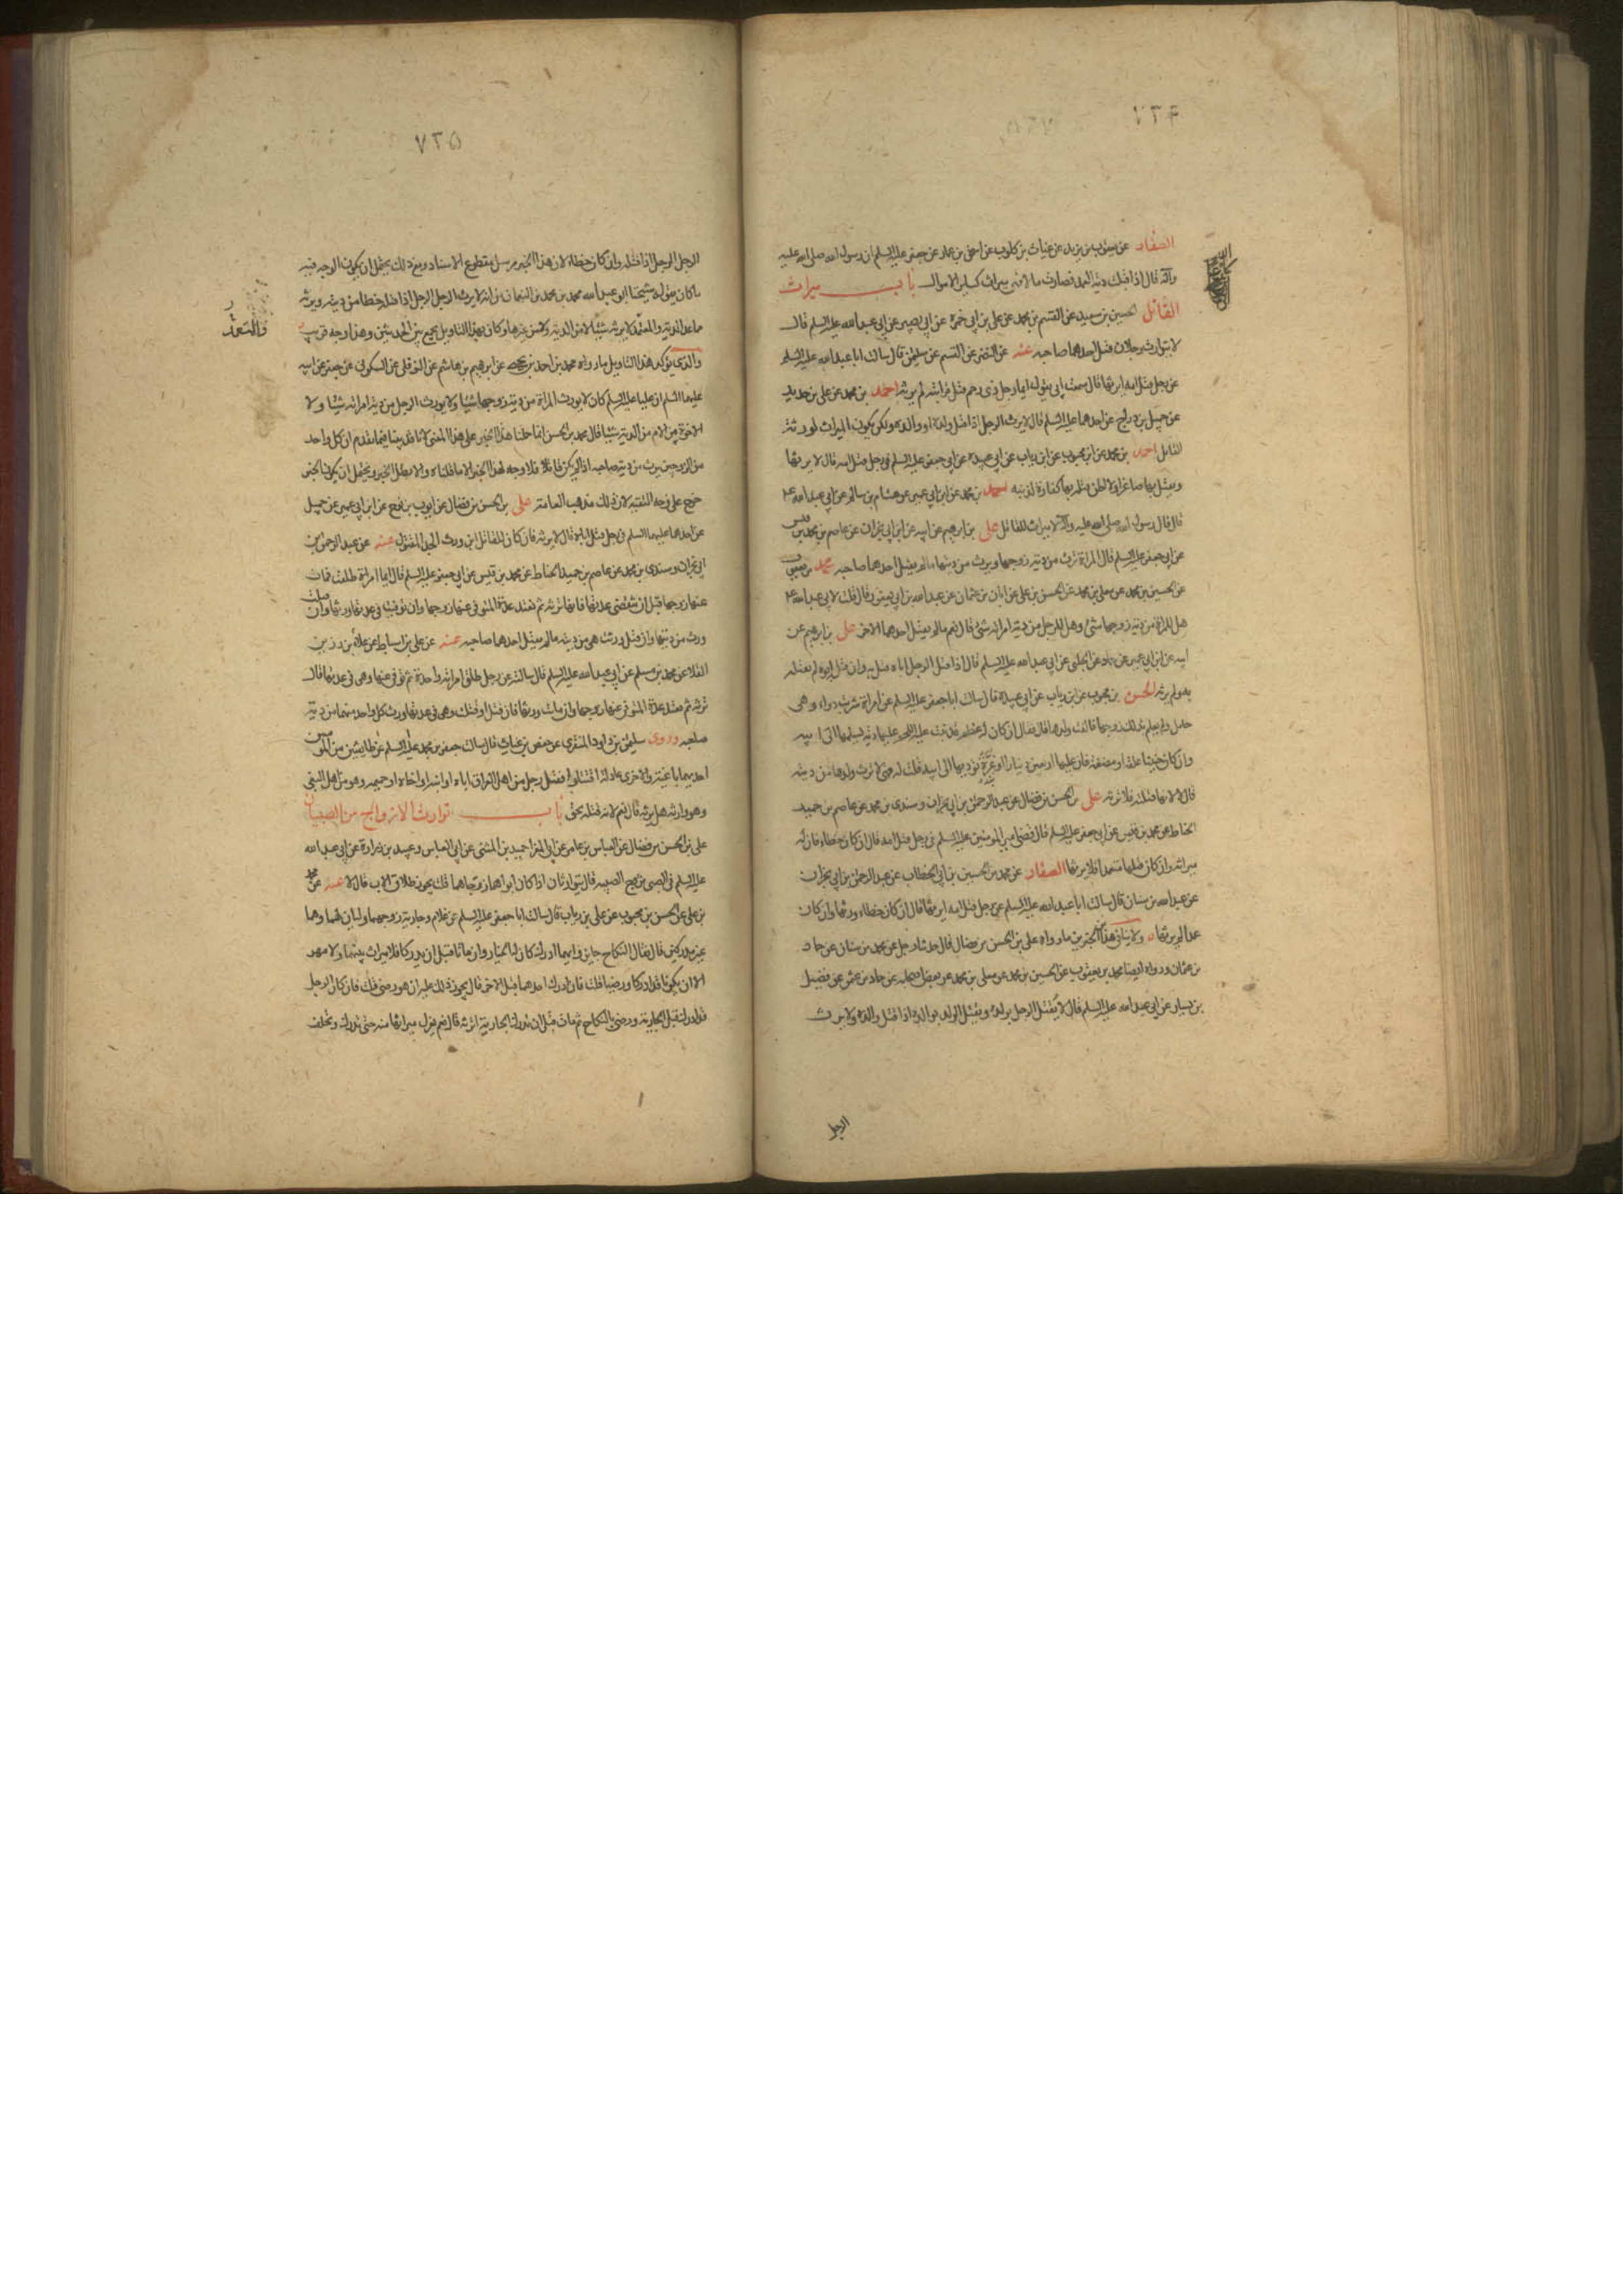 ٧٣۴
الصفار عن يعقوب بن يزيد عن غياث بن كلوب عن اسحق بن عمار عن جعفر عليه السلم ان رسول الله صلى الله عليه
وآله قال اذا قبلت دية العمد فصارت مالا فهى ميراث كساير الاموال باب ميراث
القاتل الحسين بن سعيد عن القسم بن محمد عن على بن ابى حمزة عن ابى بصير عن ابى عبد الله عليه السلم قال
لا يتوارث رجلان قتل احدهما صاحبه عنه عن النضر عن القسم عن سليمن قال سالت ابا عبد الله عليه السلم
عن رجل قتل امه ايرثها قال سمعت ابى يقول ايما رجل ذى رحم قتل قرابته لم يرثه احمد بن محمد عن على بن حديد
عن جميل بن دراج عن احدهما عليه السلم قال لا يرث الرجل اذا قتل ولده او والده ولكن يكون الميراث لورثة
القاتل احمد بن محمد عن ابن محبوب عن ابن رياب عن ابى عبيدة عن ابى جعفر عليه السلم فى رجل قتل امه قال لا يرثها
ويقتل بها صاغرا ولا اظن قتله بها كفارة لذنبه احمد بن محمد عن ابن ابى عمير عن هشام بن سالم عن ابى عبد الله ع
قال قال رسول الله صلى الله عليه وآله لا ميراث للقاتل على بن ابرهيم عن ابيه عن ابن ابى نجران عن عاصم بن محمد بن قيس
عن ابى جعفر عليه السلم قال المراة ترث من دية زوجها ويرث من ديتها ما لم يقتل احدهما صاحبه محمد بن يعقوب
عن الحسين بن محمد عن معلى بن محمد عن الحسن بن على عن ابان بن عثمان عن عبد الله بن ابى يعفور قال قلت لابى عبد الله ع
هل للمراة من دية زوجها شئ وهل للرجل من دية امراته شئ قال نعم ما لم يقتل احدهما الاخر على بن ابرهيم عن
ابيه عن ابن ابى عمير عن حماد عن الحلبى عن ابى عبد الله عليه السلم قال اذا قتل الرجل اباه قتل به وان قتله ابوه لم يقتله
به ولم يرثه الحسن بن محبوب عن ابن رياب عن ابى عبيدة قال سالت ابا جعفر عليه السلم عن امراة شربت دواء وهى
حامل ولم يعلم بذلك زوجها فالقت ولدها قال فقال ان كان له عظم قد نبت عليه اللحم عليها دية تسلمها الى ابيه
وان كان حينئذ علقة او مضغة فان عليها اربعين دينارا او غرة تؤديها الى ابيه قلت له فهى لا ترث ولدها من ديته
قال لا لانها قتلته فلا ترثه على بن الحسن بن فضال عن عبد الرحمن بن ابى نجران وسندى بن محمد عن عاصم بن حميد
الحناط عن محمد بن قيس عن ابى جعفر عليه السلم قال قضى امير المومنين عليه السلم فى رجل قتل امه قال ان كان خطاء فان له
ميراثه وان كان قتلها متعمدا فلا يرثها الصفار عن محمد بن الحسين بن ابى الخطاب عن عبد الرحمن بن ابى نجران
عن عبد الله بن سنان قال سالت ابا عبد الله عليه السلم عن رجل قتل امه ايرثها قال ان كان خطاء ورثها وان كان
عمدا لم يرثها ولا ينافى هذا الخبرين ما رواه على بن الحسن بن فضال قال حدثنا رجل عن محمد بن سنان عن حماد
بن عثمان ورواه ايضا محمد بن يعقوب عن الحسين بن محمد عن معلى بن محمد عن بعض اصحابه عن حماد بن عثمن عن فضيل
بن يسار عن ابى عبد الله عليه السلم قال لا يقتل الرجل بولده ويقتل الولد بوالده اذا قتل والده ولا يرث
الرجل
٧٣۵
الرجل الرجل اذا قتله وان كان خطاء لان هذا الخبر مرسل مقطوع الاسناد ومع ذلك يحتمل ان يكون الوجه فيه
ما كان يقوله شيخنا ابو عبد الله محمد بن محمد بن النعمان من انه لا يرث الرجل الرجل اذا قتله خطا من ديته ويرثه
ما عدا الدية والمتعمد لا يرثه شيئا لا من الدية ولا من غيرها وكان بهذا التاويل يجمع بين الحديثين وهذا وجه قريب
والمتعمد
والذى يؤكد هذا التاويل ما رواه محمد بن احمد بن يحيى عن ابرهيم بن هاشم عن النوفلى عن السكونى عن جعفر عن ابيه
عليهما السلم ان عليا عليه السلم كان لا يورث المراة من دية زوجها شيئا ولا يورث الرجل من دية امراته شيئا ولا
الاخوة من الام من الدية شيئا قال محمد بن الحسن انما حملنا هذا الخبر على هذا المعنى لانا قد بينا فيما تقدم ان كل واحد
من الزوجين يرث من دية صاحبه اذا لم يكن قاتلا فلا وجه لهذا الخبر الا ما قلناه والا بطل الخبر ويحتمل ان يكون الخبر
خرج على وجه التقية لان ذلك مذهب العامة على بن الحسن بن فضال عن ايوب بن نوح عن ابن ابى عمير عن جميل
عن احدهما عليهما السلم فى رجل قتل اباه قال لا يرثه فان كان للقاتل ابن ورث الجد المقتول عنه عن عبد الرحمن بن
ابى نجران وسندى بن محمد عن عاصم بن حميد الحناط عن محمد بن قيس عن ابى جعفر عليه السلم قال ايما امراة طلقت فمات
عنها زوجها قبل ان تنقضى عدتها فانها ترثه ثم تعتد عدة المتوفى عنها زوجها وان توفيت فى عدتها ورثها وان قتلت
ورث من ديتها وان قتل ورثت هى من ديته ما لم يقتل احدهما صاحبه عنه عن على بن اسباط عن علاء بن رزين
القلا عن محمد بن مسلم عن ابى عبد الله عليه السلم قال سالته عن رجل طلق امراته واحدة ثم توفى عنها وهى فى عدتها قال
ترثه ثم تعتد عدة المتوفى عنها زوجها وان ماتت ورثها فان قتل او قتلت وهى فى عدتها ورث كل واحد منهما من دية
صاحبه وروى سليمن بن داود المنقرى عن حفص بن غياث قال سالت جعفر بن محمد عليه السلم عن طايفتين من المومنين
احديهما باغية والاخرى عادلة اقتتلوا فقتل رجل من اهل العراق اباه او ابنه او اخاه او حميمه وهو من اهل البغى
وهو وارثه هل يرثه قال نعم لانه قتله بحق باب توارث الازواج من الصبيان
على بن الحسن بن فضال عن العباس بن عامر عن ابى المغرا حميد بن المثنى عن ابى العباس وعبيد بن زرارة عن ابى عبد الله
عليه السلم فى الصبى يزوج الصبية قال يتوارثان اذا كان ابواهما زوجاهما قلت يجوز طلاق الاب قال لا عنه عن محمد
بن على عن الحسن بن محبوب عن على بن رياب قال سالت ابا جعفر عليه السلم عن غلام وجارية زوجهما وليان لهما وهما
غير مدركين قال فقال النكاح جايز وايهما ادرك كان له الخيار وان ماتا قبل ان يدركا فلا ميراث بينهما ولا مهر
الا ان يكونا قد ادركا ورضيا قلت فان ادرك احدهما قبل الاخر قال يجوز ذلك عليه ان هو رضى قلت فان كان الرجل
قد ادرك قبل الجارية ورضى بالنكاح ثم مات قبل ان تدرك الجارية اترثه قال نعم يعزل ميراثها منه حتى تدرك وتحلف